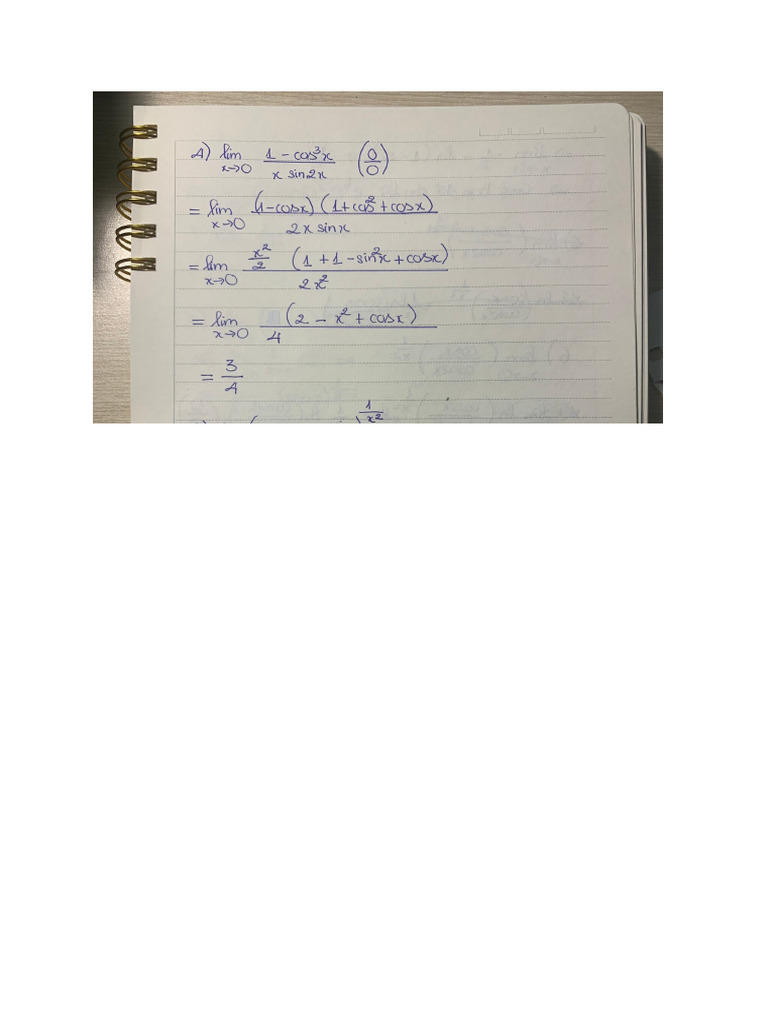 1) lim x→0 (1 - cos³x) / (x sin2x) (0/0)
= lim x→0 (1-cosx) (1+cos²+cosx) / (2x sinx)
= lim x→0 x²/2 (1+1-sin²x+cosx) / (2x²)
= lim x→0 (2 - x² + cosx) / 4
= 3/4
1/x²